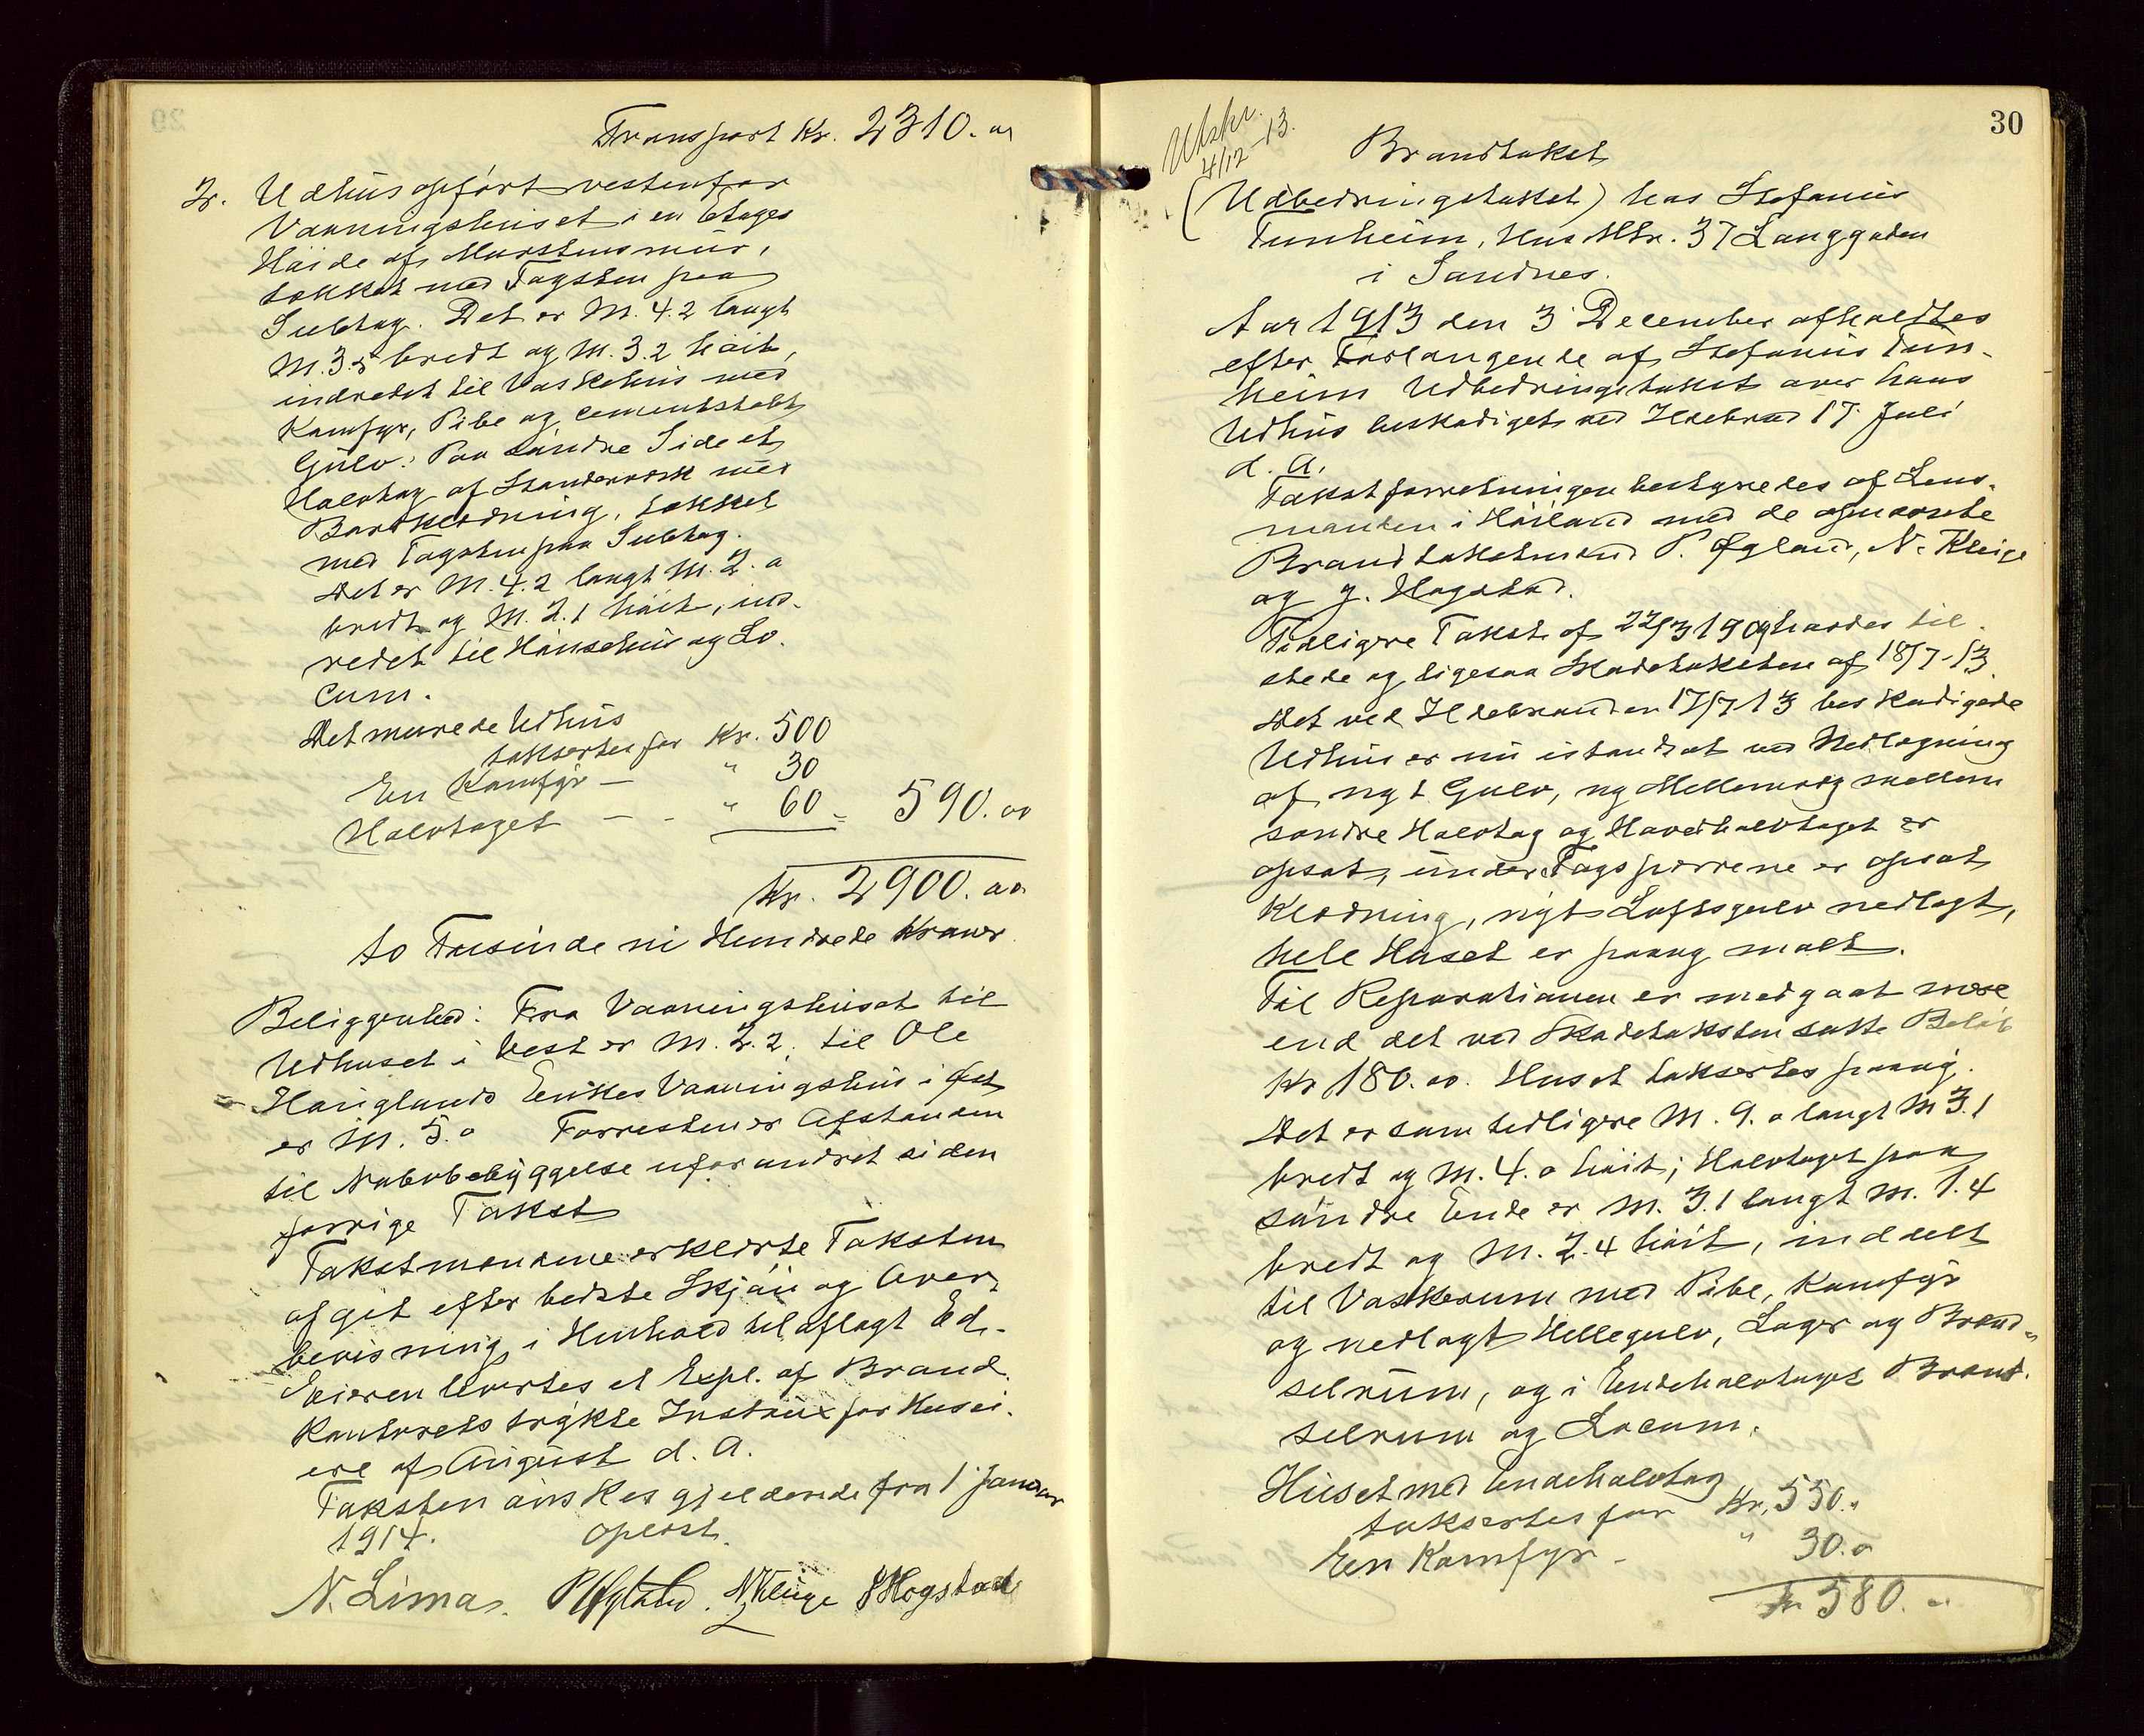 Transport Kr. 2310.00
2. Udhus opført vestenfor
Vaaningshuset i en Etages
Høide af Murstensmur,
tækket med Tagsten paa
Sultag. Det er M. 4.2 langt
M. 3.5 bredt og M. 3.2 høit,
indredet til Vaskehus med
Komfyr, Pibe og cementstøbt
Gulv. Paa søndre Side et
Halvtag af Stenderværk med
Bordklædning, tækket
med Tagsten paa Sultag.
Det er M. 4.2 langt M. 2.0
bredt og M. 2.1 høit, ind-
redet til Hønsehus og Lo-
cum.
Det murede Udhus
taksertes for Kr. 500
En Komfyr — " 30
Halvtaget — - " 60 = 590.00
Kr. 2900.00
to Tusinde ni Hundrede Kroner
Beliggenhed: Fra Vaaningshuset til
Udhuset i Vest er M. 2.2, til Ole
Høiglands Enkes Vaaningshus i Øst
er M. 5.0 Forresten er Afstanden
til Nabobebyggelse uforandret siden
forrige Takst
Takstmændene erklærte Taksten
afgit efter bedste Skjøn og Over-
bevisning i Henhold til aflagt Ed.
Eieren levertes et Expl. af Brand-
kontorets trykte Instrux for Husei-
ere af August d. A.
Taksten ønskes gjeldende fra 1 Januar
1914. Oplæst.
N. Lima. P Øgland. N Kleige J Hogstad
30
Utskr.
4/12-13.
Brandtakst
(Udbedringstakst) hos Stefanus
Tunheim, Hus Mtr. 37 Langgaden
i Sandnes.
Aar 1913 den 3 December afholdtes
efter Forlangende af Stefanus Tun-
heim Udbedringstakst over hans
Udhus beskadiget ved Ildebrand 17 Juli
d. A.
Takstforretningen bestyredes af Lens-
manden i Høiland med de opnævnte
Brandtakstmænd P. Øgland, N. Kleige
og J. Hogstad.
Tidligere Takst af 22/3 1909 havdes til-
stede og ligesaa Skadetaksten af 18/7-13.
Det ved Ildebranden 17/7 13 beskadigede
Udhus er nu istandsat ved Nedlægning
af nyt Gulv, ny Mellemvæg mellem
søndre Halvtag og Hovedhalvtaget er
opsat, under Tagsperrene er opsat
Klædning, nyt Loftsgulv nedlagt,
hele Huset er paany malt.
Til Reparationen er medgaat mere
end det ved Skadetaksten satte Beløb
Kr 180.00. Huset taksertes paany.
Det er som tidligere M. 9.0 langt M 3.1
bredt og M. 4.0 høit; Halvtaget paa
søndre Ende er M. 3.1 langt M. 1.4
bredt og M. 2.4 høit, inddelt
til Vaskerum med Pibe, Komfyr
og nedlagt Hellegulv, Lager og Brænd-
selrum, og i Endehalvtaget Brænd-
selrum og Locum.
Huset med Endehalvtag
taksertes for Kr. 550.0
En Komfyr - " 30.0
Kr 580.00